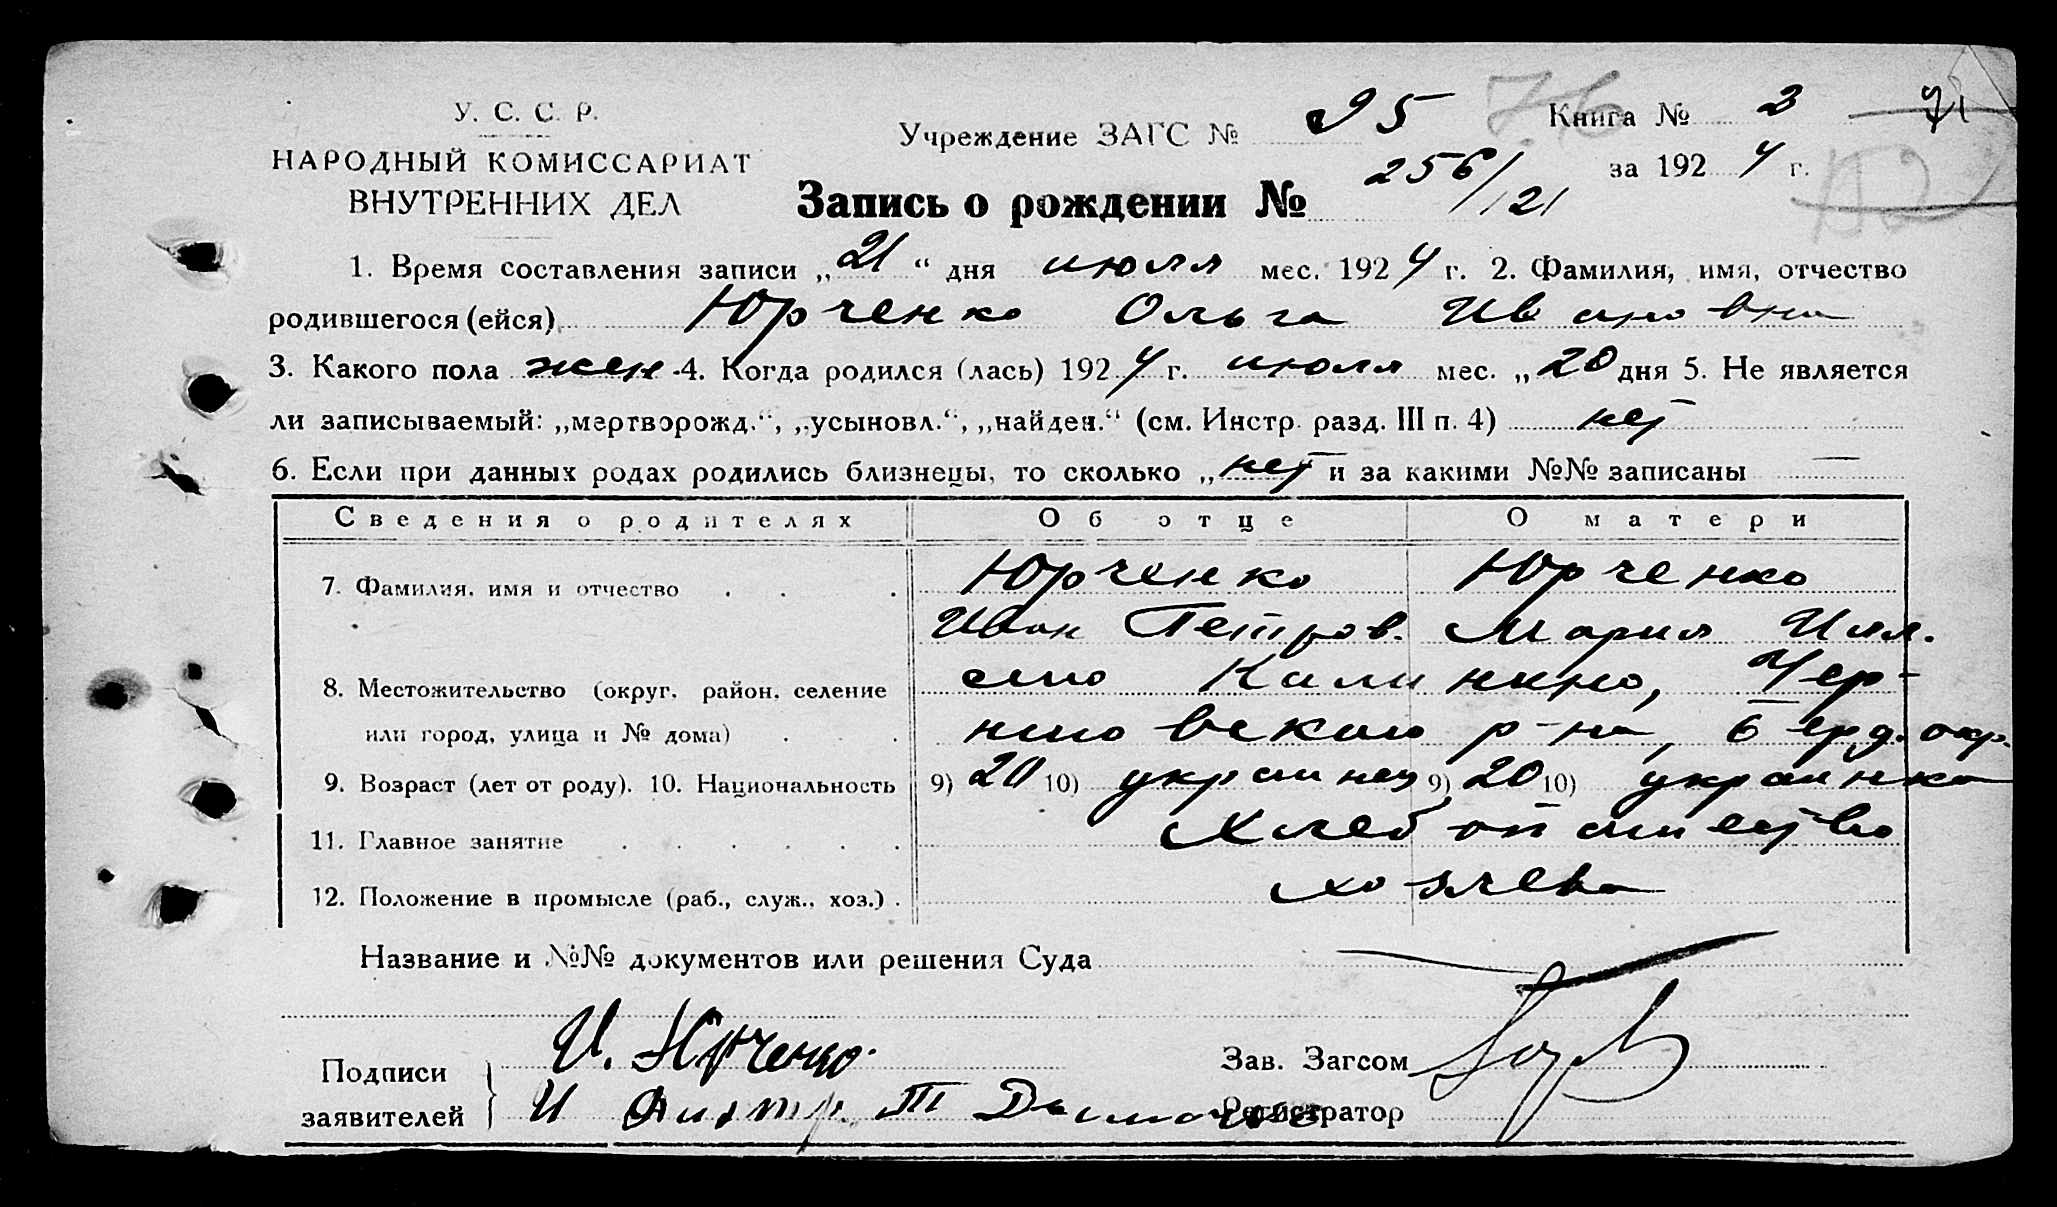 У. С. С. Р.
НАРОДНЫЙ КОМИССАРИАТ
ВНУТРЕННИХ ДЕЛ
Учреждение ЗАГС № 95 76 Книга № 2
за 1924 г.
Запись о рождении № 256/121
1. Время составления записи „21“ дня июля мес. 1924 г. 2. Фамилия, имя, отчество
родившегося (ейся) Юрченко Ольга Ивановна
3. Какого пола жен. 4. Когда родился (лась) 1924 г. июля мес. „20 дня 5. Не является
ли записываемый: „мертворожд.“, „усыновл.“, „найден.“ (см. Инстр. разд. III п. 4) нет
6. Если при данных родах родились близнецы, то сколько „нет“ и за какими №№ записаны —
Сведения о родителях Об отце О матери
7. Фамилия, имя и отчество Юрченко Юрченко
Иван Петров. Мария Илл.
8. Местожительство (округ, район, селение село Калинкино, Чер-
или город, улица и № дома) р-на, берд. окр.
9. Возраст (лет от роду). 10. Национальность 9) 20 10) украинец 9) 20 10) украинка
11. Главное занятие Хлебопашество
12. Положение в промысле (раб., служ., хоз.) хозяева
Название и №№ документов или решения Суда
Подписи
заявителей
И. Юрченко
И
Зав. Загсом
Регистратор